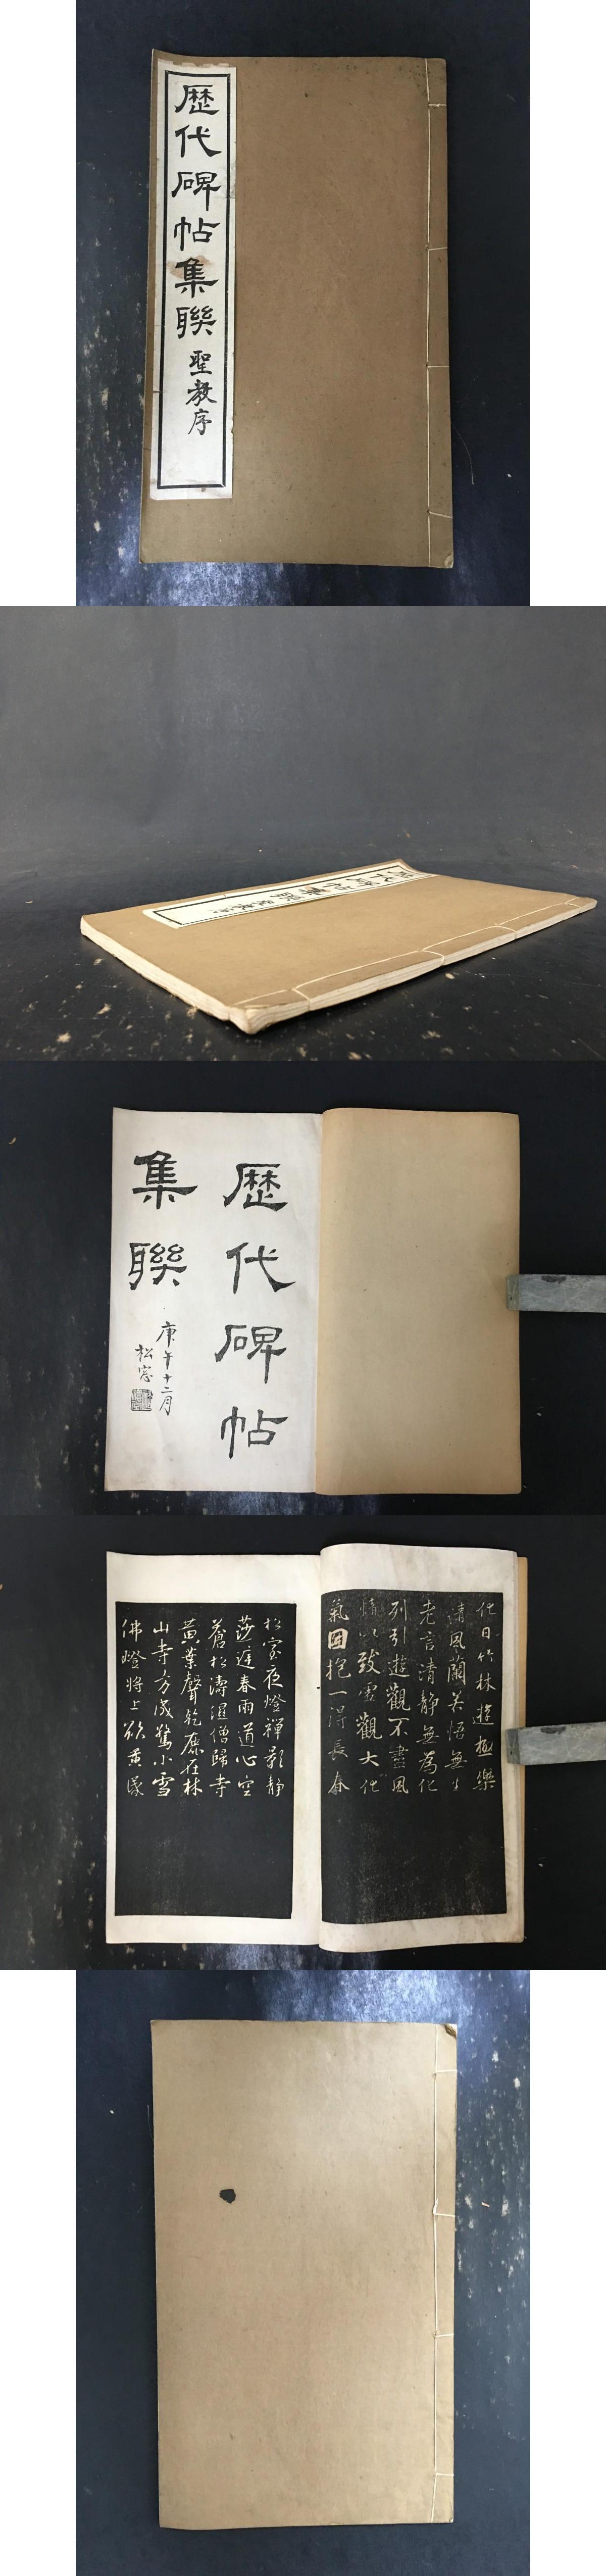 歷代碑帖集聯 聖教序
歷代碑帖
集聯
庚午十二月
松窓
化日竹林遊極樂
清風蘭若悟無生
老言清靜無為化
列引遊觀不盡風
情以致虛觀大化
氣固抱一得長春
松室夜燈禪影靜
莎庭春雨道心空
蒼松濤濕僧歸寺
黃葉聲乾鹿在林
山寺方成驚小雪
佛燈將上欲黃